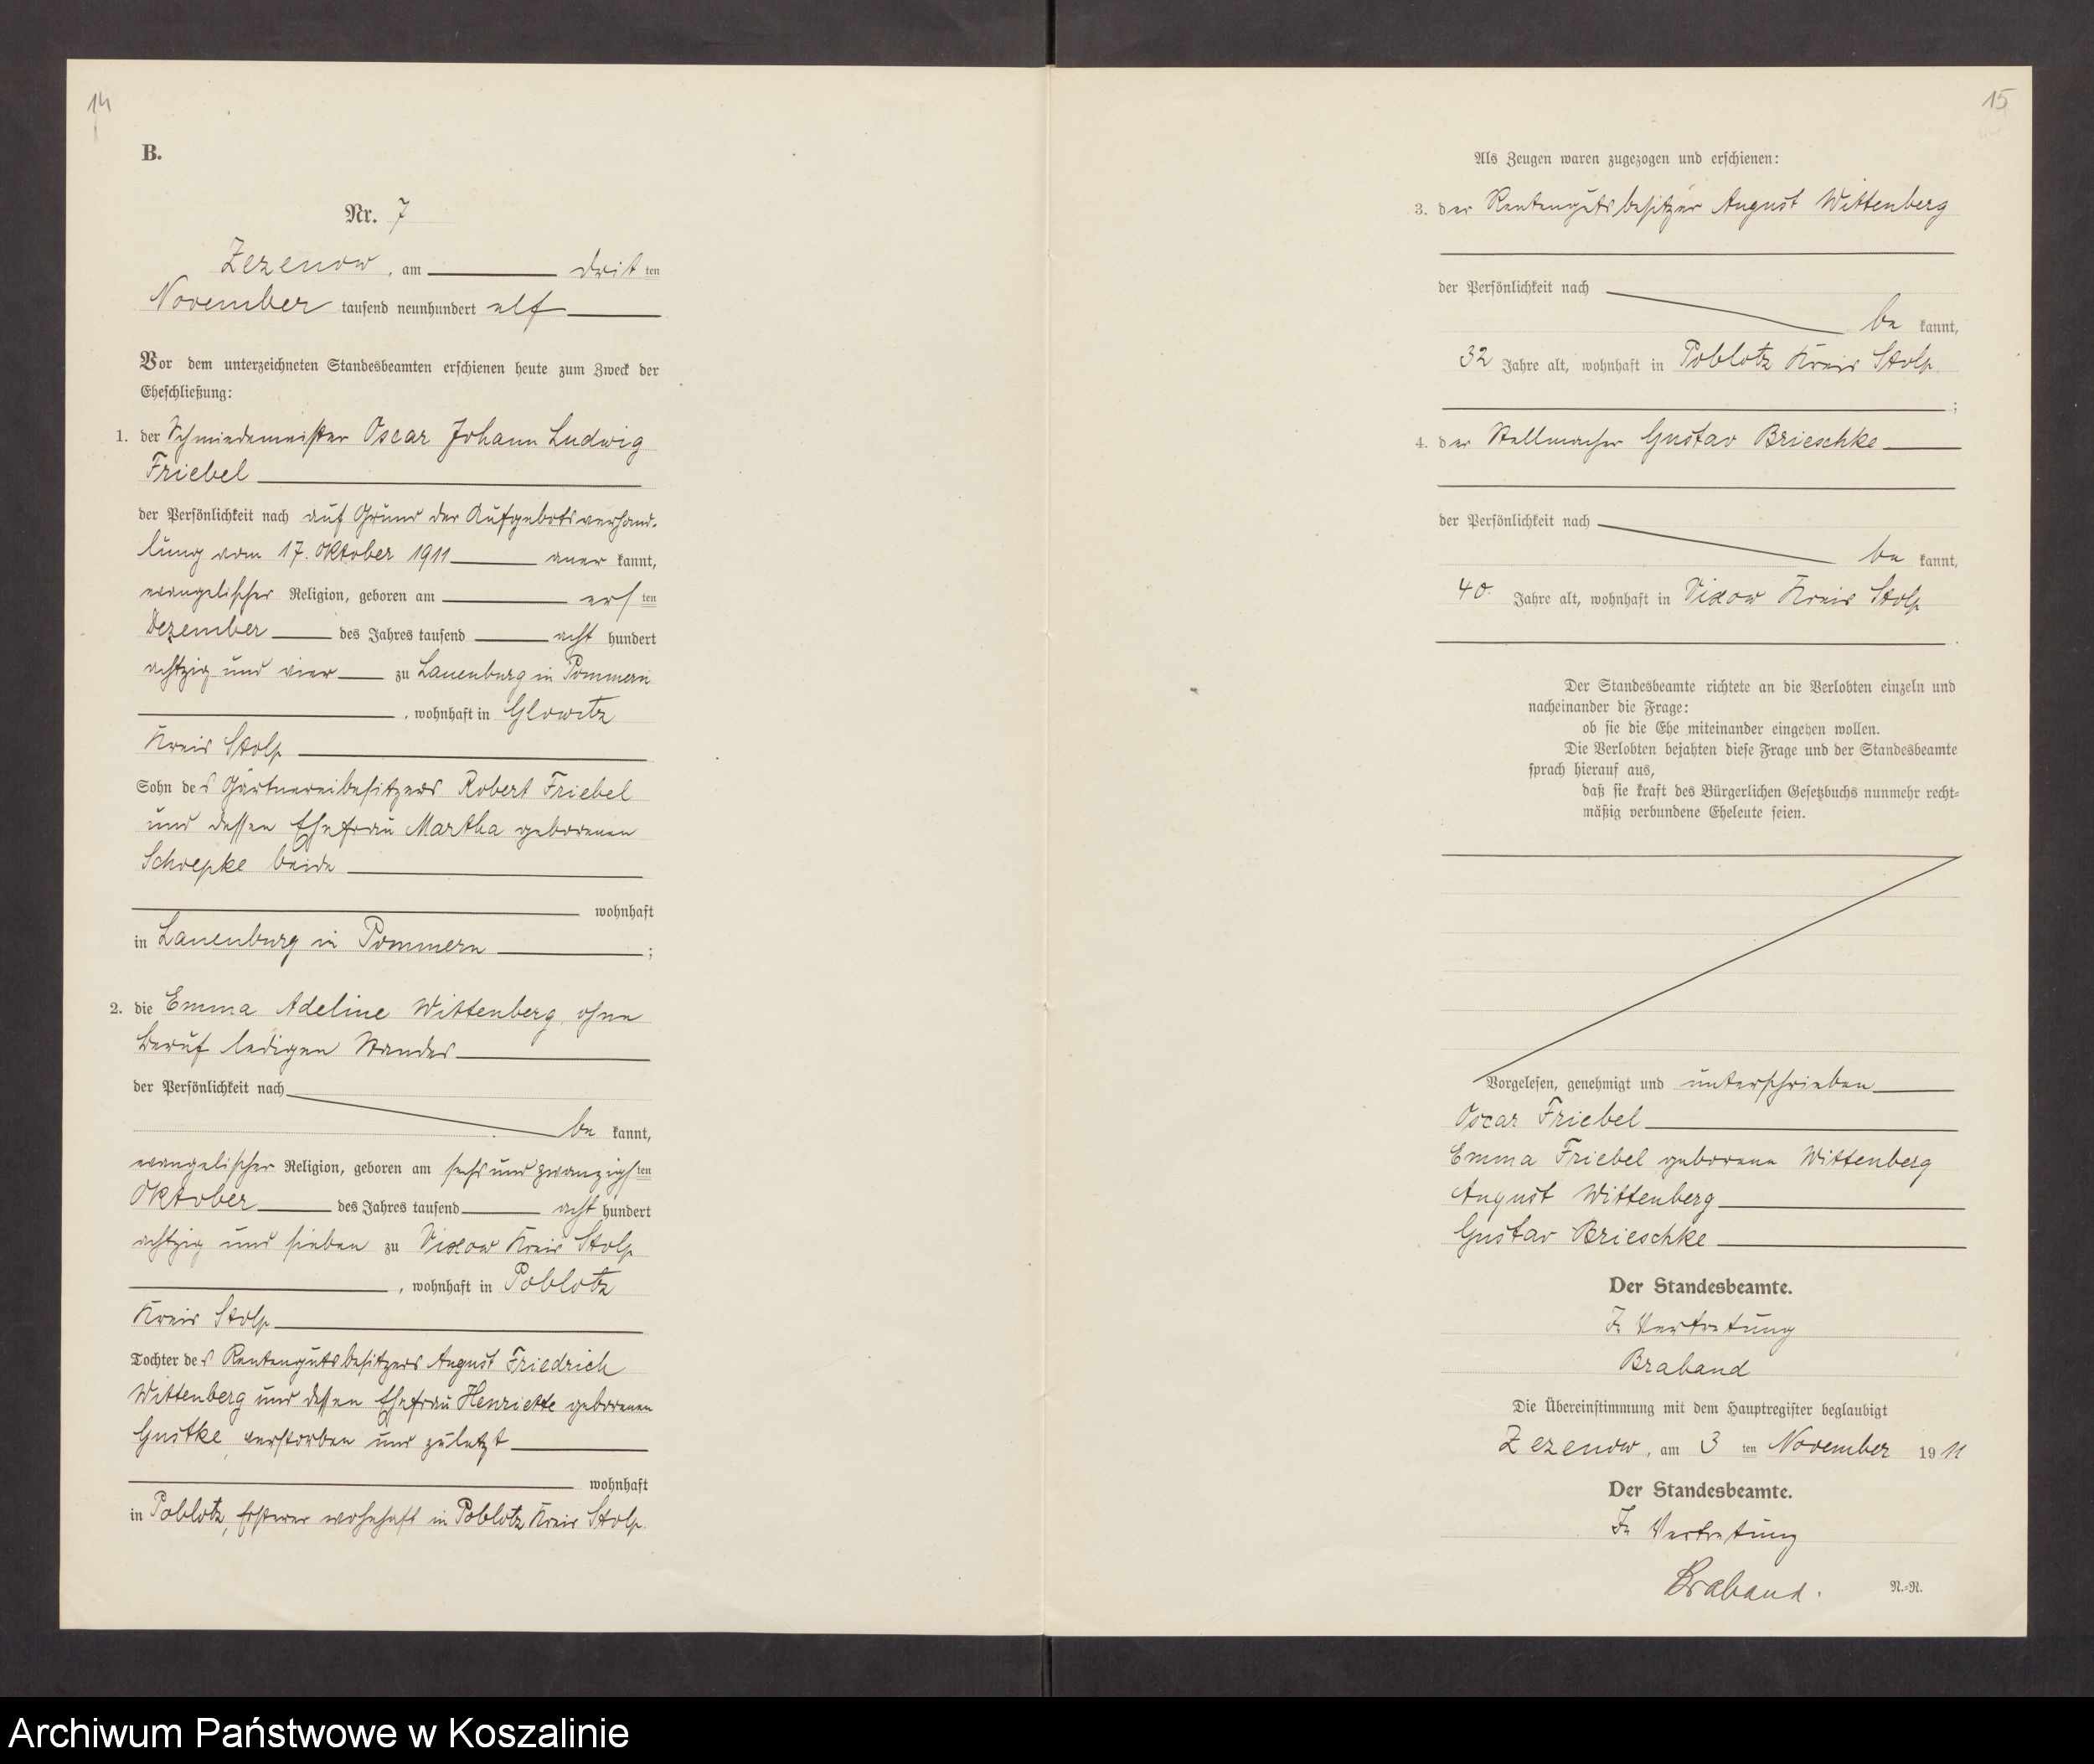 14
B.
Nr. 7
Zezenow, am dritten
November tausend neunhundert elf
Vor dem unterzeichneten Standesbeamten erschienen heute zum Zweck der
Eheschließung:
1. der Schmiedemeister Oscar Johann Ludwig
Friebel
der Persönlichkeit nach auf Grund der Aufgebotsverhand-
lung vom 17. Oktober 1911 aner kannt,
evangelischer Religion, geboren am ersten
Dezember des Jahres tausend acht hundert
achtzig und vier zu Lauenburg in Pommern
, wohnhaft in Glowitz
Kreis Stolp
Sohn des Gärtnereibesitzers Robert Friebel
und dessen Ehefrau Martha geborenen
Schoepke beide
wohnhaft
in Lauenburg in Pommern ;
2. die Emma Adeline Wittenberg, ohne
Beruf ledigen Standes
der Persönlichkeit nach
be kannt,
evangelischer Religion, geboren am sechs und zwanzigsten
Oktober des Jahres tausend acht hundert
achtzig und sieben zu Vixow Kreis Stolp
, wohnhaft in Poblotz
Kreis Stolp
Tochter des Rentengutsbesitzers August Friedrich
Wittenberg und dessen Ehefrau Henriette geborenen
Gustke, verstorben und zuletzt
wohnhaft
in Poblotz, Ersterer wohnhaft in Poblotz Kreis Stolp.
15
Als Zeugen waren zugezogen und erschienen:
3. der Rentengutsbesitzer August Wittenberg
der Persönlichkeit nach
be kannt,
32 Jahre alt, wohnhaft in Poblotz Kreis Stolp
;
4. der Stellmacher Gustav Brieschke
der Persönlichkeit nach
be kannt,
40 Jahre alt, wohnhaft in Vixow Kreis Stolp
.
Der Standesbeamte richtete an die Verlobten einzeln und
nacheinander die Frage:
ob sie die Ehe miteinander eingehen wollen.
Die Verlobten bejahten diese Frage und der Standesbeamte
sprach hierauf aus,
daß sie kraft des Bürgerlichen Gesetzbuchs nunmehr recht-
mäßig verbundene Eheleute seien.
Vorgelesen, genehmigt und unterschrieben
Oscar Friebel
Emma Friebel geborene Wittenberg
August Wittenberg
Gustav Brieschke
Der Standesbeamte.
In Vertretung
Braband
Die Übereinstimmung mit dem Hauptregister beglaubigt
Zezenow, am 3 ten November 1911
Der Standesbeamte.
In Vertretung
Braband.
N.-R.
Archiwum Państwowe w Koszalinie